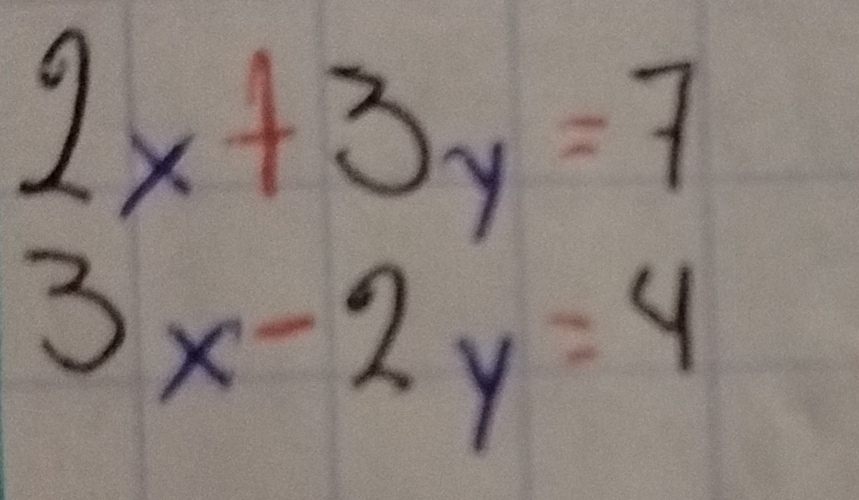 2x + 3y = 7
3x - 2y = 4